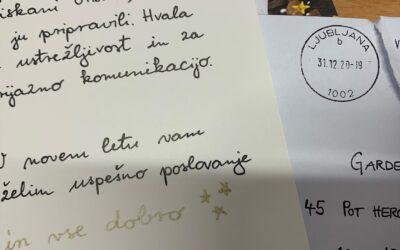 ju pripravili. Hvala
ustrežljivost in za
komunikacijo.
novem letu vam
želim uspešno poslovanje
in vse dobro
LJUBLJANA
b
31.12.20-19
1002
GARDE
45 POT HERO